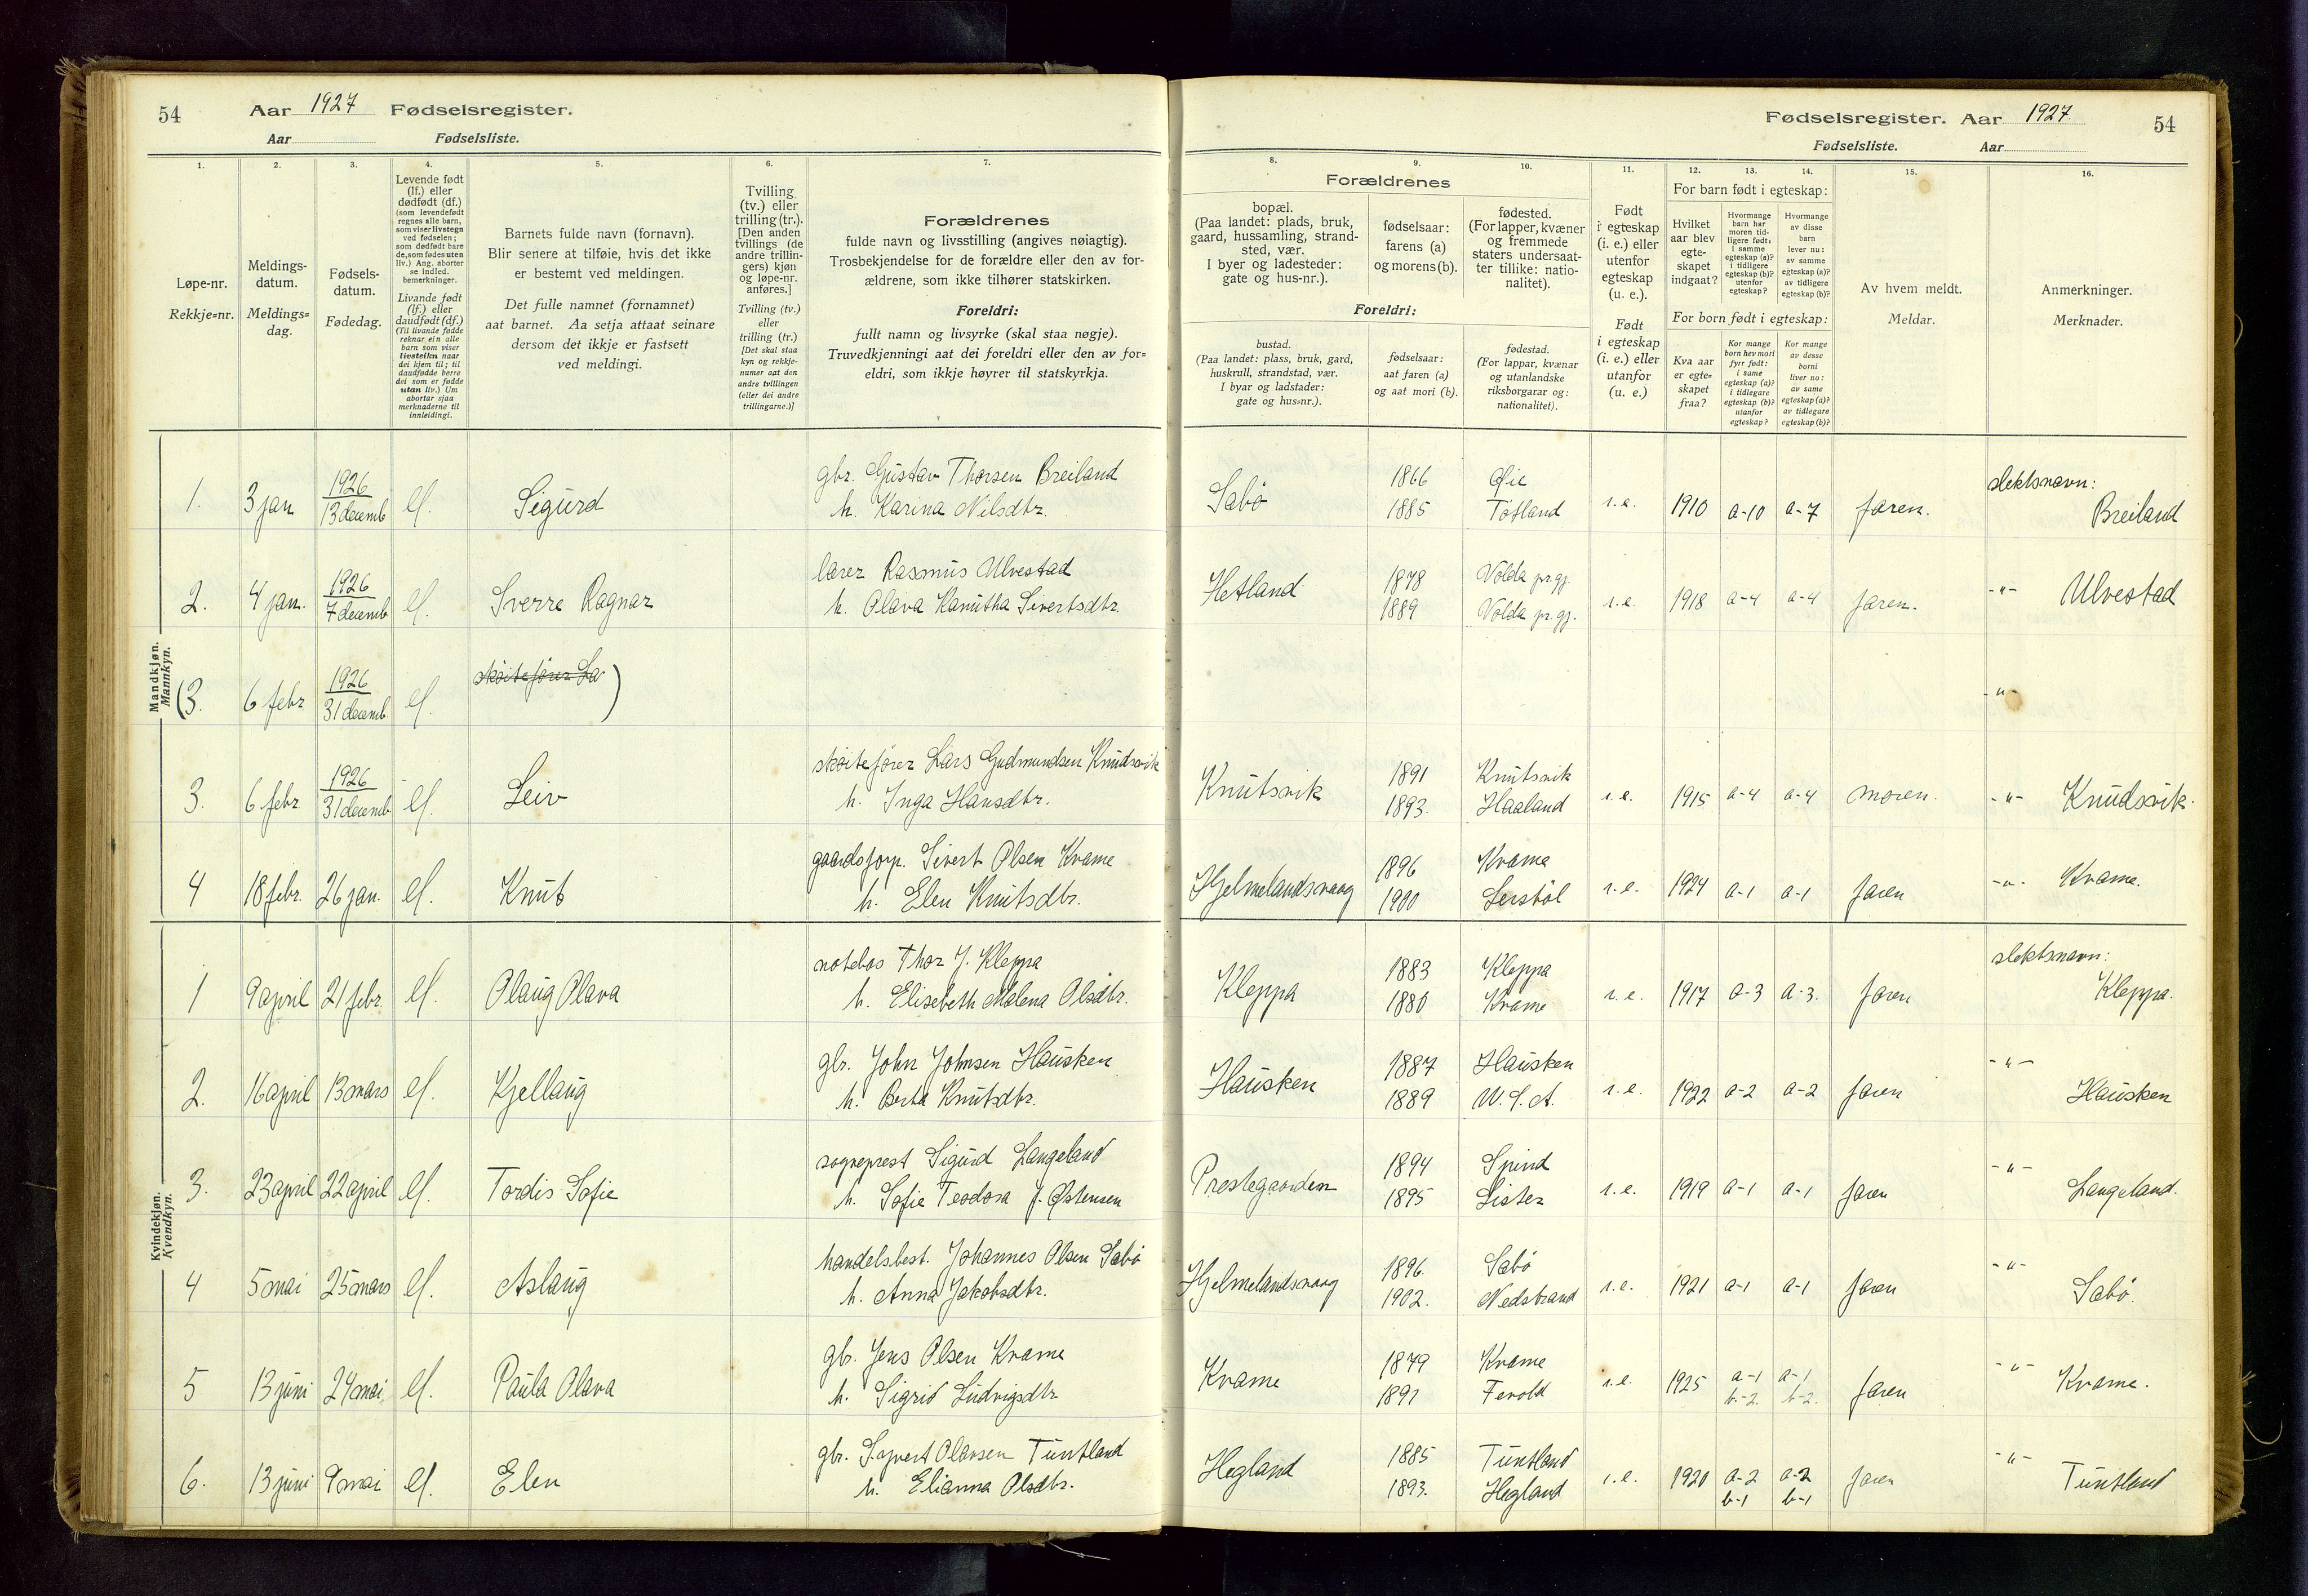 54 Aar 1927 Fødselsregister.
Aar Fødselsliste.
1. 2. 3. 4. 5. 6. 7.
Løpe-nr.
Rekkje=nr.
Meldings-
datum.
Meldings=
dag.
Fødsels-
datum.
Fødedag.
Levende født
(lf.) eller
dødfødt (df.)
(som levendefødt
regnes alle barn,
som viser livstegn
ved fødselen;
som dødfødt bare
de, som fødes uten
liv.) Ang. aborter
se indled.
bemerkninger.
Livande født
(lf.) eller
daudfødt (df.)
(Til livande fødde
reknar ein alle
barn som viser
livsteikn naar
dei kjem til; til
daudfødde berre
dei som er fødde
utan liv.) Um
abortar sjaa
merknaderne til
innleidingi.
Barnets fulde navn (fornavn).
Blir senere at tilføie, hvis det ikke
er bestemt ved meldingen.
Det fulle namnet (fornamnet)
aat barnet. Aa setja attaat seinare
dersom det ikkje er fastsett
ved meldingi.
Tvilling
(tv.) eller
trilling (tr.).
[Den anden
tvillings (de
andre trillin-
gers) kjøn
og løpe-nr.
anføres.]
Tvilling (tv.)
eller
trilling (tr.)
[Det skal staa
kyn og rekkje-
numer aat den
andre tvillingen
(eller dei andre
trillingarne.)]
Forældrenes
fulde navn og livsstilling (angives nøiagtig).
Trosbekjendelse for de forældre eller den av for-
ældrene, som ikke tilhører statskirken.
Foreldri:
fullt namn og livsyrke (skal staa nøgje).
Truvedkjenningi aat dei foreldri eller den av for=
eldri, som ikkje høyrer til statskyrkja.
Fødselsregister. Aar 1927 54
Fødselsliste. Aar
8. 9. 10. 11. 12. 13. 14. 15. 16.
Forældrenes
bopæl.
(Paa landet: plads, bruk,
gaard, hussamling, strand-
sted, vær.
I byer og ladesteder:
gate og hus-nr.).
fødselsaar:
farens (a)
og morens (b).
fødested.
(For lapper, kvæner
og fremmede
staters undersaat-
ter tillike: natio-
nalitet).
Foreldri:
bustad.
(Paa landet: plass, bruk, gard,
huskrull, strandstad, vær.
I byar og ladstader:
gate og hus=nr.).
fødselsaar:
aat faren (a)
og aat mori (b).
fødestad.
(For lappar, kvænar
og utanlandske
riksborgarar og:
nationalitet).
Født
i egteskap
(i. e.) eller
utenfor
egteskap
(u. e.).
Født
i egteskap
(i. e.) eller
utanfor
(u. e.)
For barn født i egteskap:
Hvilket
aar blev
egte-
skapet
indgaat?
Hvormange
barn har
moren tid-
ligere født:
i samme
egteskap (a)?
i tidligere
egteskap (b)?
utenfor
egteskap?
Hvormange
av disse
barn
lever nu:
av samme
egteskap (a)?
av tidligere
egteskap (b)?
For born født i egteskap:
Kva aar
er egte=
skapet
fraa?
Kor mange
born hev mori
fyrr født:
i same
egteskap (a)?
i tidlegare
egteskap (b)?
utanfor
egteskap?
Kor mange
av desse
borni
liver no:
av same
egteskap (a)?
av tidlegare
egteskap (b)?
Av hvem meldt.
Meldar.
Anmerkninger.
Merknader.
Mandkjøn.
Mannkyn.
1. 3 jan 1926 13 decemb lf. Sigurd gbr. Gustav Thorsen Breiland h. Karina Nilsdtr. Sabö 1866 1885 Øie Tøtland i.e. 1910 a-10 a-7 faren. slektsnavn: Breiland
2. 4 jan. 1926 7 decemb lf. Sverre Ragnar lærer Rasmus Ulvestad h. Olava Kanutha Sivertsdtr. Hetland 1878 1889 Volda pr.gj. Volda pr.gj. i.e. 1918 a-4 a-4 faren. -"- Ulvestad
(3. 6 febr 1926 31 decemb. lf. skøitefører La) -"-
3. 6 febr 1926 31 decemb lf. Leiv skøitefører Lars Gudmundsen Knudsvik h. Inga Hansdtr. Knutsvik 1891 1893. Knutsvik Haaland i.e. 1915 a-4 a-4 moren. -"- Knudsvik.
4 18 febr. 26 jan. lf. Knut gaardsforp. Sivert Olsen Kvame h. Elen Knutsdtr. Hjelmelandsvaag 1896 1900 Kvame Serstöl i.e. 1924 a-1 a-1 faren -"- Kvame.
Kvindekjøn.
Kvendkyn.
1 9 april 21 febr. lf. Olaug Olava notebas Thor J. Kleppa h. Elisebeth Malena Olsdtr. Kleppa 1883 1880 Kleppa Kvame i.e. 1917 a-3 a-3. faren slektsnavn: Kleppa.
2. 16 april 13 mars lf. Kjellaug gbr. John Johnsen Hausken h. Berta Knutsdtr. Hausken 1887 1889 Hausken U.S.A. i.e. 1922 a-2 a-2 faren -"- Hausken
3. 23 april 22 april lf. Tordis Sofie sogneprest Sigurd Langeland h. Sofie Teodora f. Østensen Prestegaarden 1894 1895 Spind Lister i.e. 1919 a-1 a-1 faren -"- Langeland.
4 5 mai 25 mars lf. Aslaug handelsbest. Johannes Olsen Sabö h. Anna Jakobsdtr. Hjelmelandsvaag 1896. 1902. Sabö Nedstrand i.e. 1921 a-1 a-1 faren -"- Sabö.
5 13 juni 24 mai lf. Paula Olava gbr. Jens Olsen Kvame h. Sigrid Ludvigsdtr Kvame 1879 1891 Kvame Fevold i.e. 1925 a-1 b-2. a-1 b-2. faren -"- Kvame.
6. 13 juni 9 mai lf. Elen gbr. Sigvert Olavsen Tuntland h. Elianna Olsdtr. Hegland 1885 1893. Tuntland Hegland i.e. 1920 a-2 b-1 a-2 b-1 faren -"- Tuntland